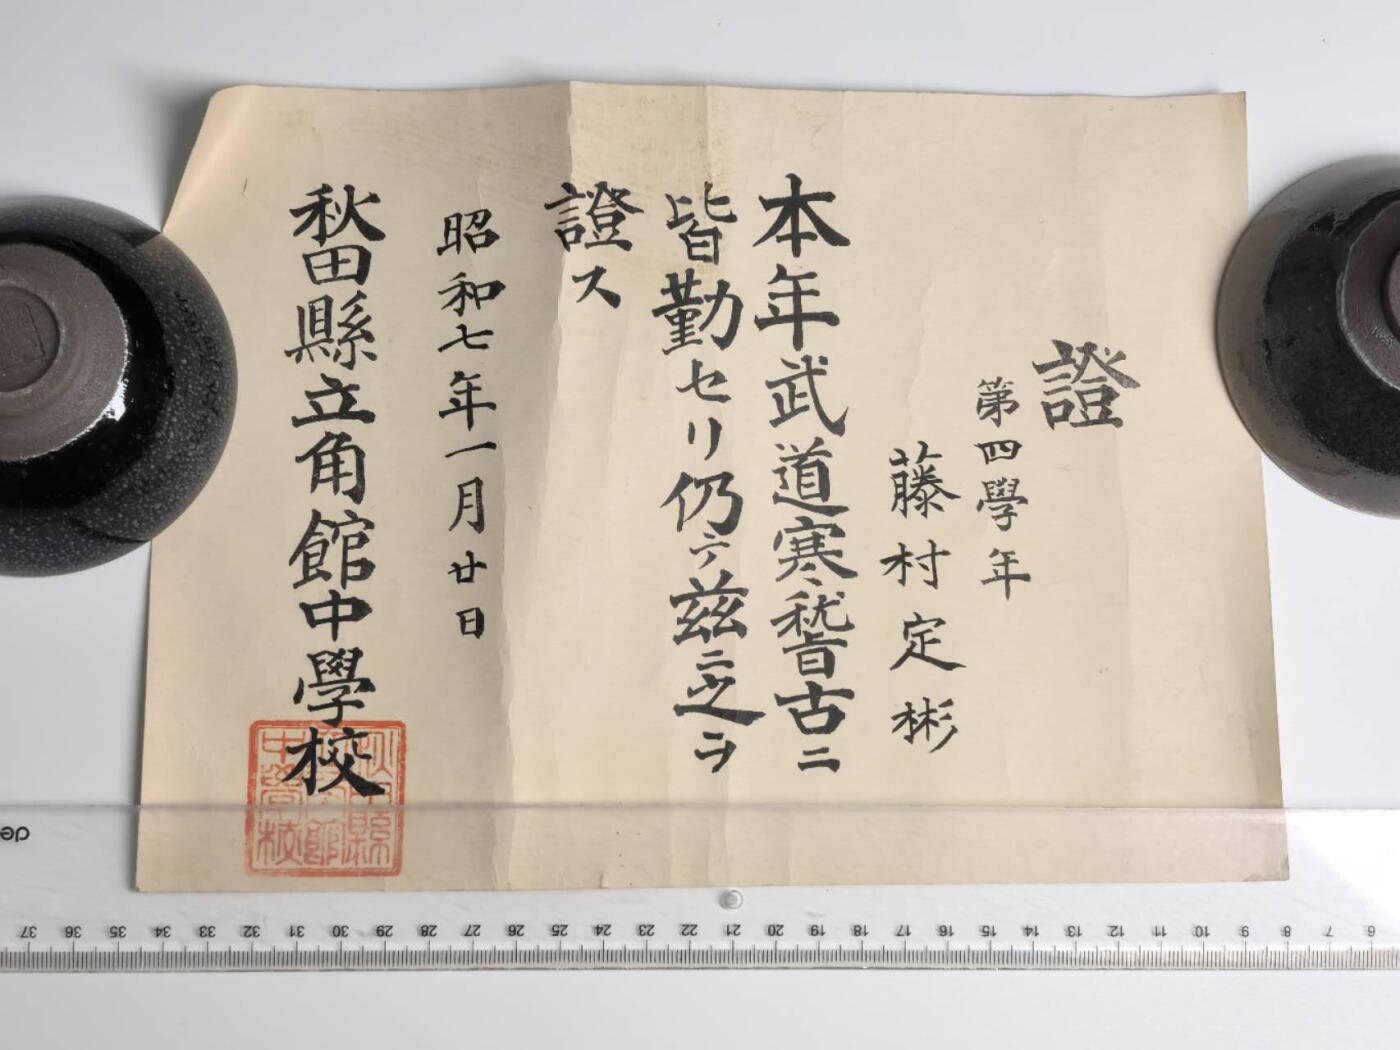 證
第四學年
藤村定彬
本年武道寒稽古ニ
皆勤セリ仍テ茲ニ之ヲ
證ス
昭和七年一月廿日
秋田縣立角館中學校
秋田縣
立角館
中學校
37 36 35 34 33 32 31 30 29 28 27 26 25 24 23 22 21 20 19 18 17 16 15 14 13 12 11 10 9 8 7 6